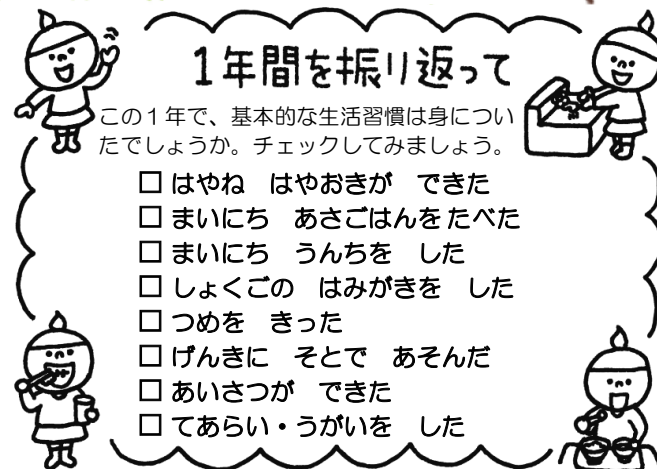 1年間を振り返って
この1年で、基本的な生活習慣は身につい
たでしょうか。チェックしてみましょう。
□ はやね　はやおきが　できた
□ まいにち　あさごはんをたべた
□ まいにち　うんちを　した
□ しょくごの　はみがきを　した
□ つめを　きった
□ げんきに　そとで　あそんだ
□ あいさつが　できた
□ てあらい・うがいを　した